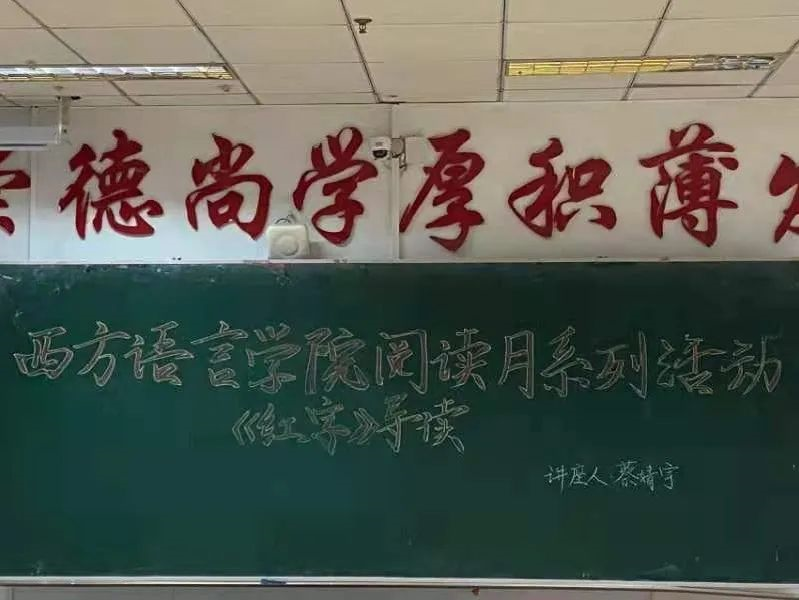 崇德尚学厚积薄发
西方语言学院阅读月系列活动
《红字》导读
讲座人:蔡婧宇